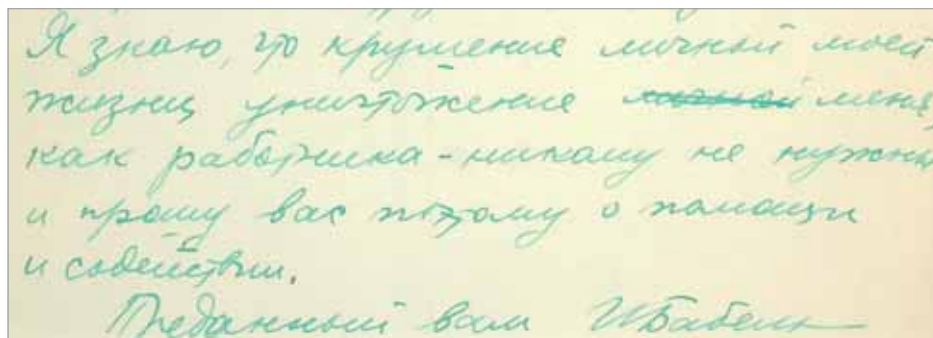 Я знаю, что крушение личной моей
жизни, уничтожение личной меня,
как работника - никому не нужны
и прошу вас потому о помощи
и содействии.
Преданный вам И Бабель